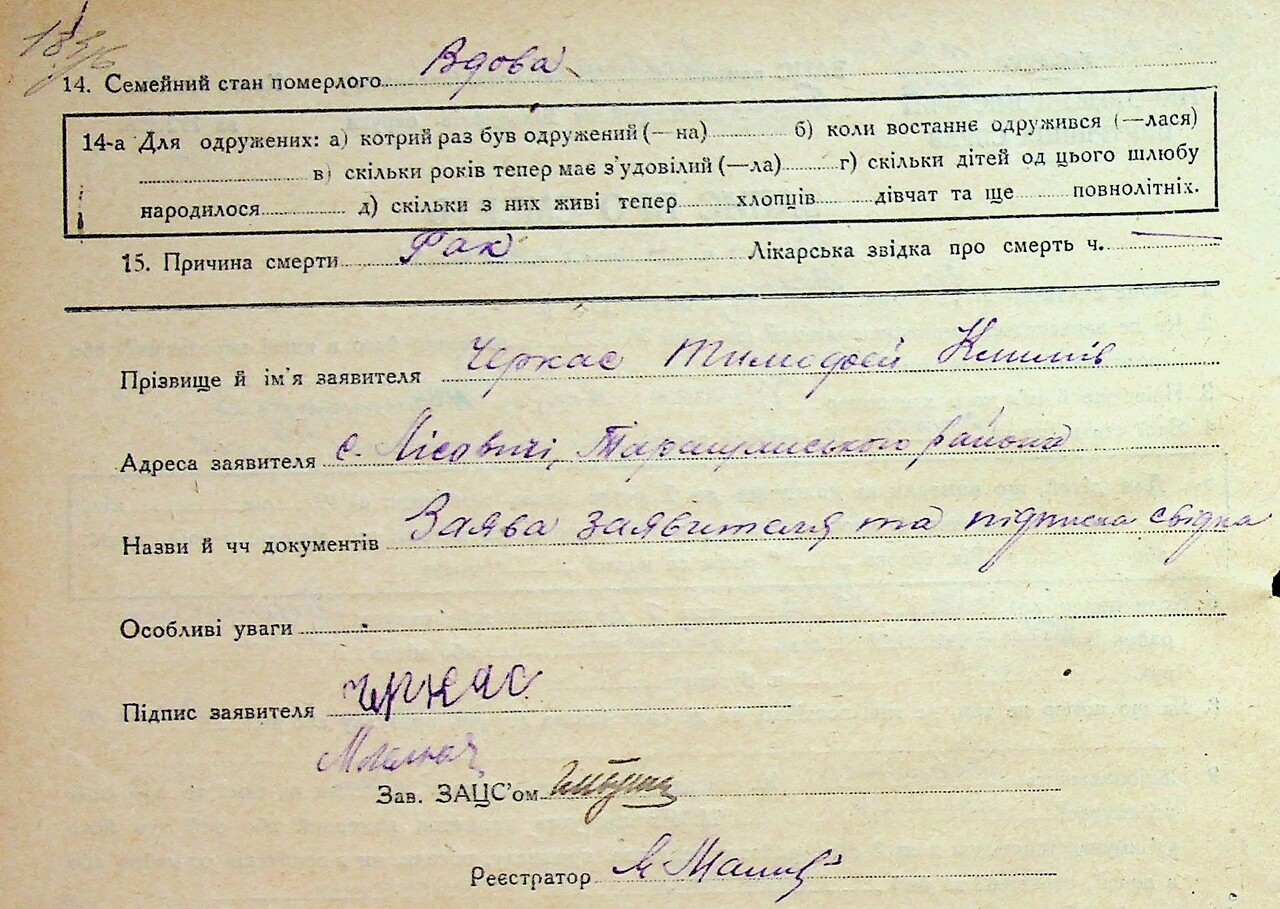 14. Семейний стан померлого Вдова
14-а Для одружених: а) котрий раз був одружений (—на) б) коли востаннє одружився (—лася)
в) скільки років тепер має з'удовілий (—ла) г) скільки дітей од цього шлюбу
народилося д) скільки з них живі тепер хлопців дівчат та ще повнолітніх.
15. Причина смерти Рак Лікарська звідка про смерть ч. —
Прізвище й ім'я заявителя Черкас Тимофей Климів
Адреса заявителя с. Лісовичі, Таращанського района
Назви й чч документів Заява заявителя та підписка свідка
Особливі уваги
Підпис заявителя Черкас
Зав. ЗАЦС'ом
Реєстратор